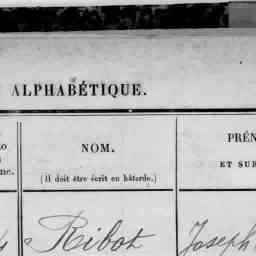 ALPHABÉTIQUE.
NOM.
(Il doit être écrit en bâtarde.)
PRÉN
ET SUR
Ribot
Joseph